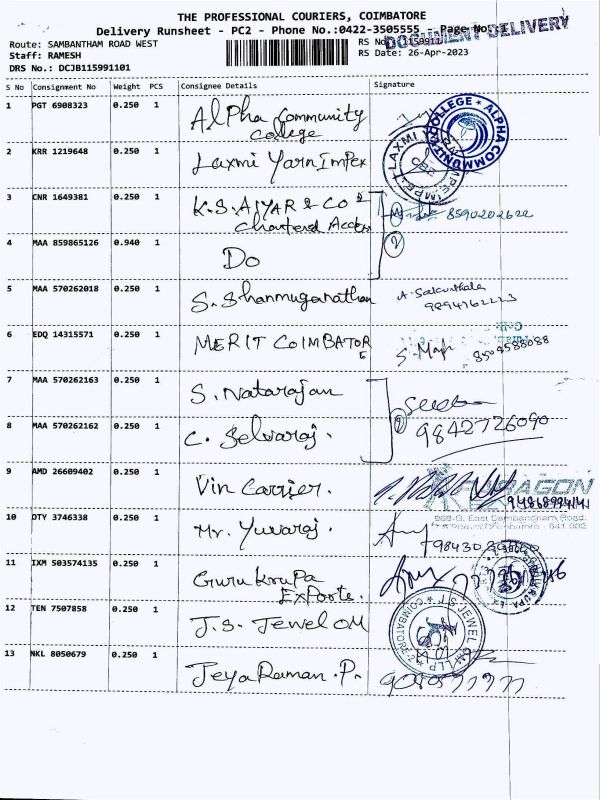 THE PROFESSIONAL COURIERS, COIMBATORE
Delivery Runsheet - PC2 - Phone No.:0422-3505555 Page No
DOCUMENT DELIVERY
Route: SAMBANTHAM ROAD WEST
RS No
Staff: RAMESH
RS Date: 26-Apr-2023
DRS No.: DCJB115991101
S No Consignment No Weight PCS Consignee Details Signature
1 PGT 6908323 0.250 1 Alpha Community College
COLLEGE * ALPHA COMMUNITY
2 KRR 1219648 0.250 1 Laxmi Yarn Impex
LAXMI
3 CNR 1649381 0.250 1 K.S. AIYAR & CO
Chartered 8590202622
4 MAA 859865126 0.940 1 Do
2
5 MAA 570262018 0.250 1 S. Shanmuganathan
6 EDQ 14315571 0.250 1 MERIT COIMBATORE
7 MAA 570262163 0.250 1 S. Natarajan
8 MAA 570262162 0.250 1 C. Selvaraj. 9842726090
9 AMD 26609402 0.250 1 Vin Carrier.
PARAGON
969-G, East Sambandham Road,
10 DTY 3746338 0.250 1 Mr. Yuvaraj.
11 IXM 503574135 0.250 1 Guru Krupa Exports.
12 TEN 7507858 0.250 1 J.S. Jewel
J S JEWEL
COIMBATORE
13 NKL 8050679 0.250 1 Jeya Raman. P.